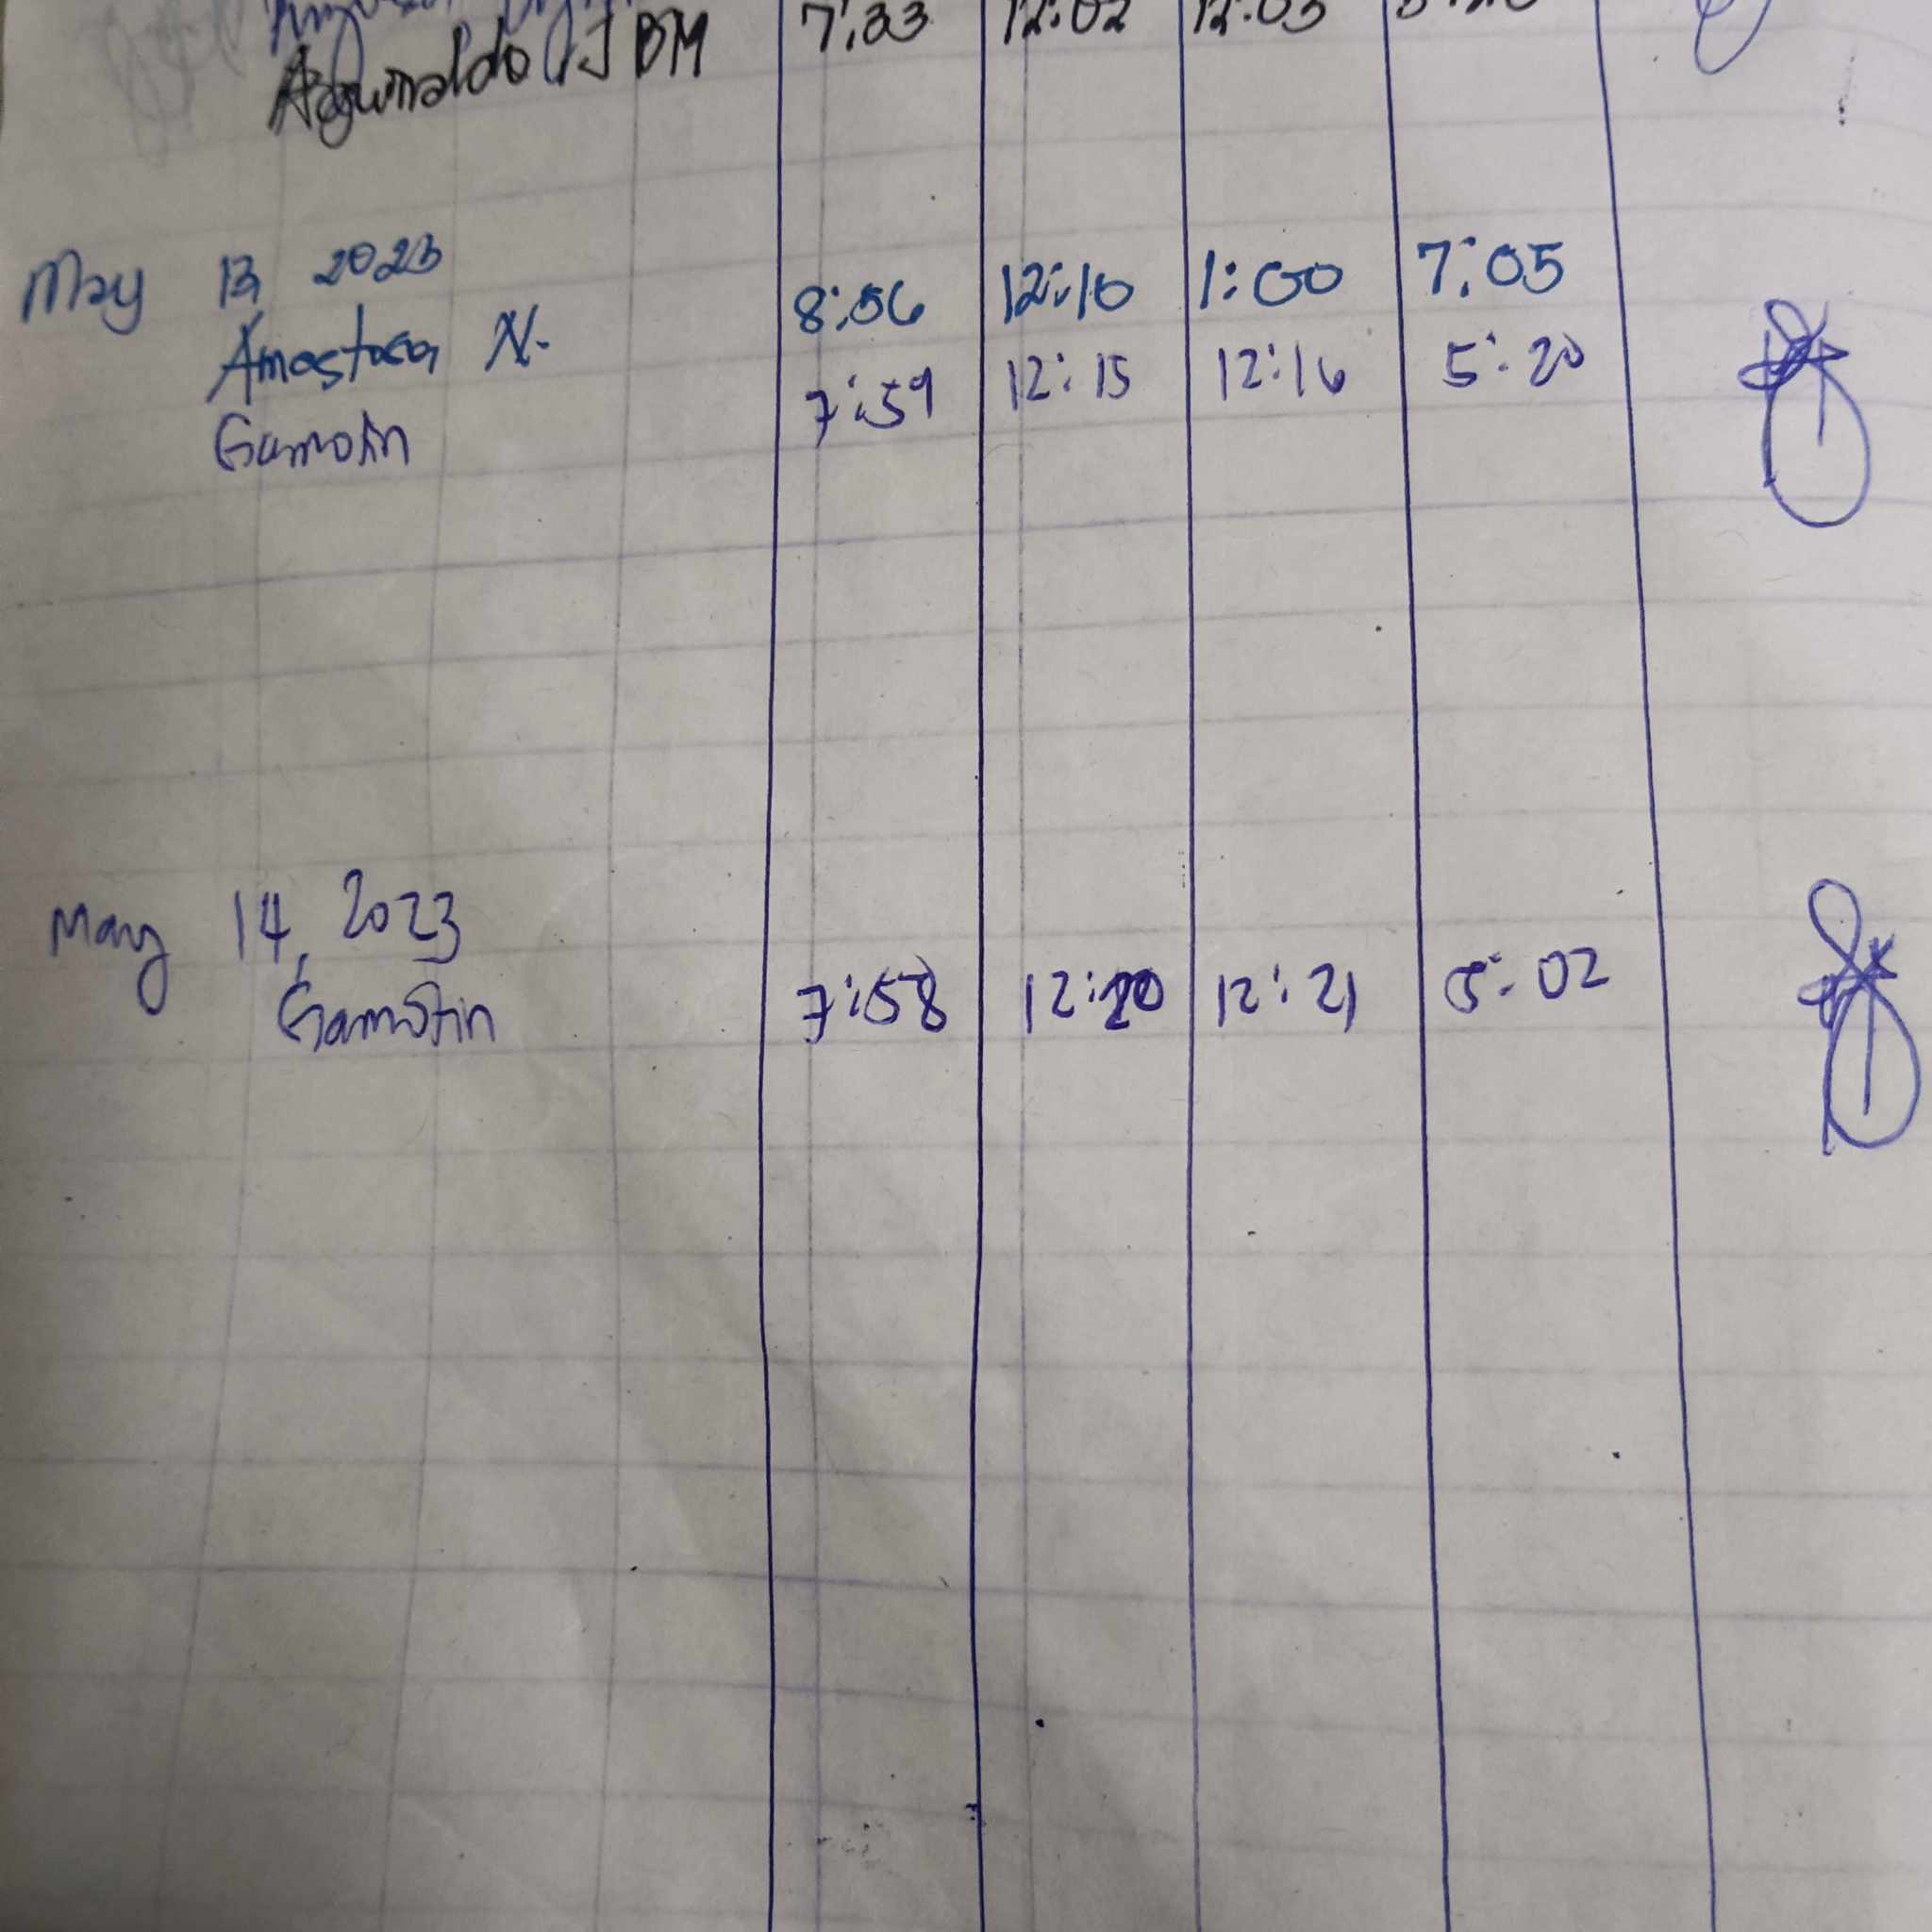 Aguinaldo, J BM 7:33 12:02 12:03
May 13, 2023
Amostosa N. 8:56 12:10 1:00 7:05
Gamotin 7:59 12:15 12:16 5:20
May 14, 2023
Gamotin 7:58 12:20 12:21 5:02